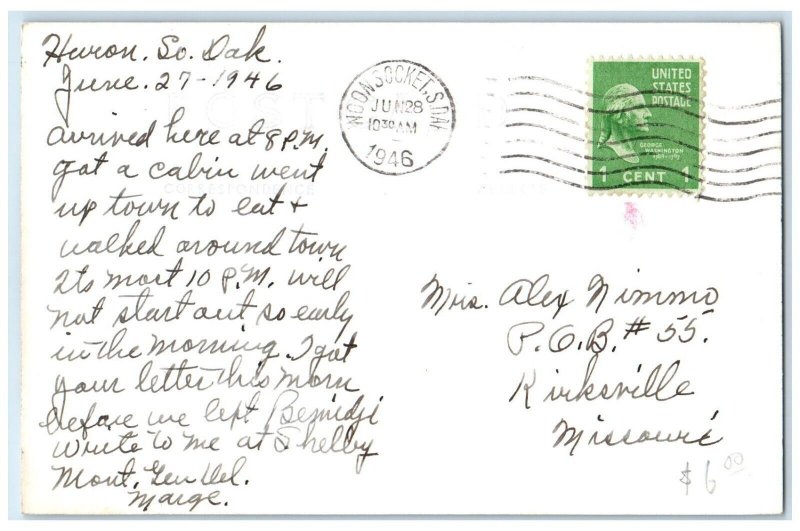 Huron. So. Dak.
June. 27-1946
arrived here at 8 P.M.
got a cabin went
up town to eat +
walked around town
Its most 10 P.M. will
not start out so early
in the morning. I got
your letter this morn
before we left Bemidji
write to me at Shelby
Mont. Gen Del.
Marge.
WOONSOCKET, S.DAK
JUN 28
10 30 AM
1946
UNITED
STATES
POSTAGE
GEORGE
WASHINGTON
1789-1797
1 CENT 1
POST
CORRESPONDENCE
Mrs. Alex Nimmo
P.O.B. # 55.
Kirksville
Missouri
$6 00